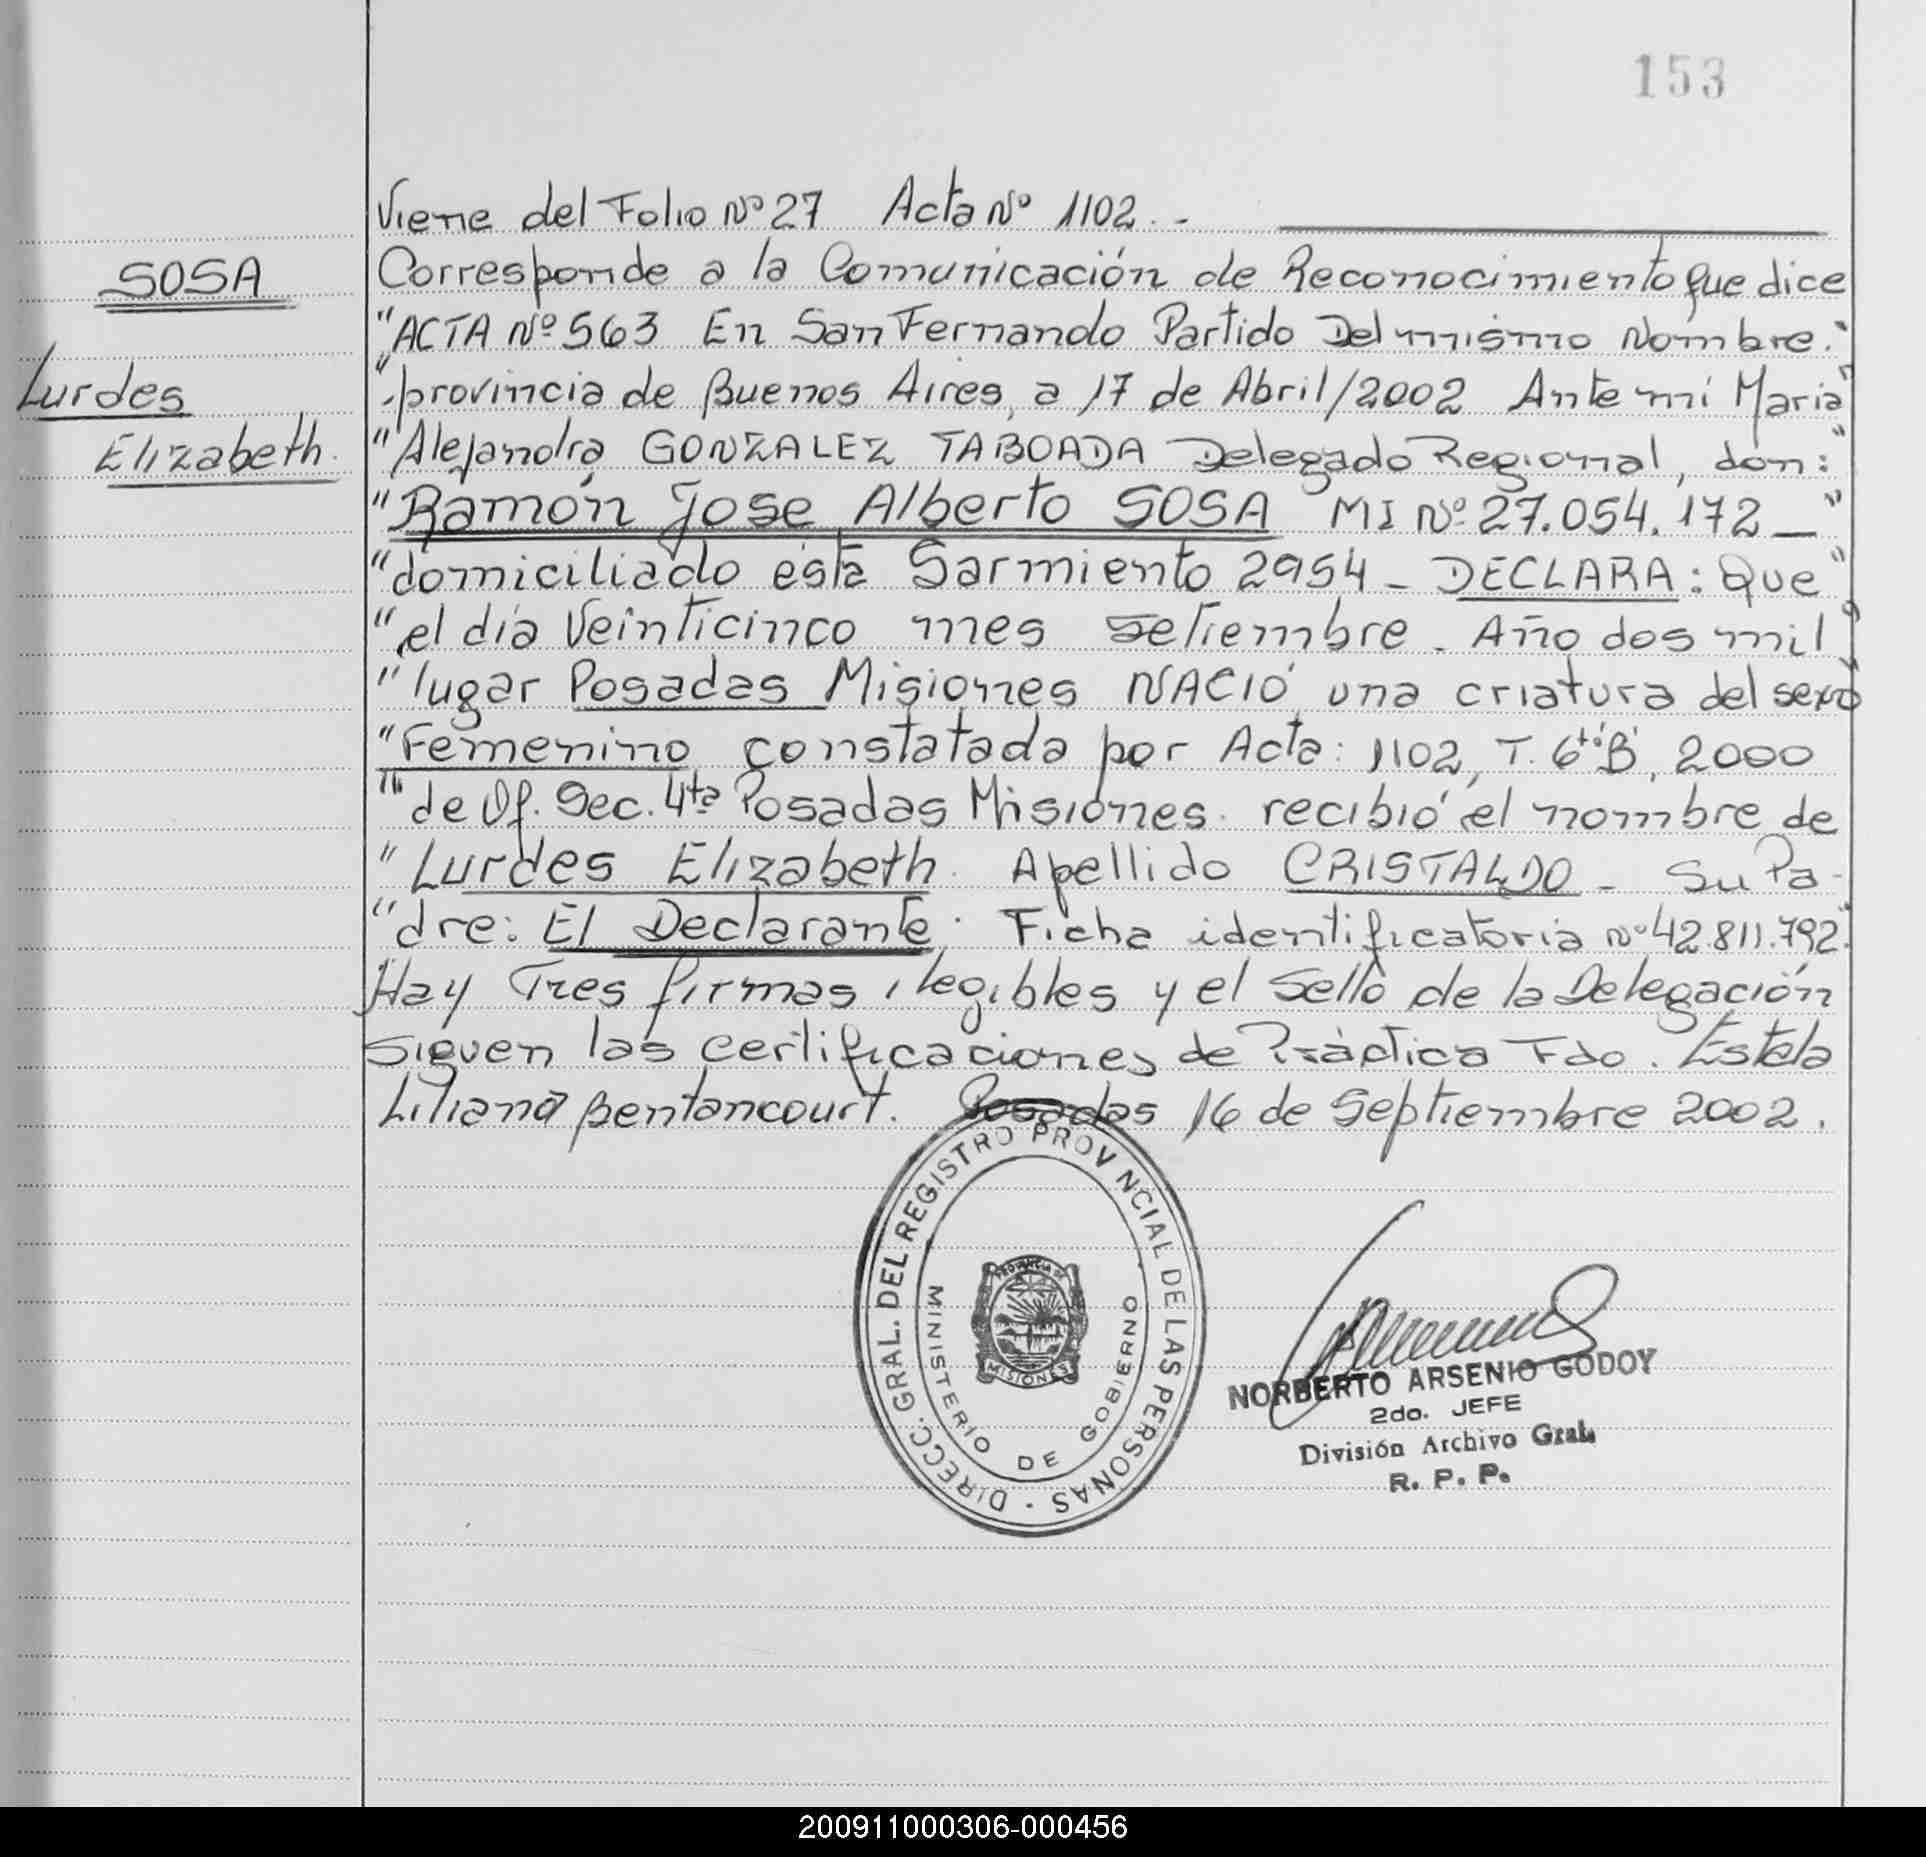 153
Viene del Folio Nº 27 Acta Nº 1102.-
SOSA
Lurdes
Elizabeth.
Corresponde a la Comunicación de Reconocimiento que dice
"ACTA Nº 563 En San Fernando Partido Del mismo Nombre."
"provincia de Buenos Aires, a 17 de Abril/2002 Ante mí Maria"
"Alejandra GONZALEZ TABOADA Delegado Regional, don:"
"Ramón Jose Alberto SOSA MI Nº 27.054.172_"
"domiciliado está Sarmiento 2954_ DECLARA: Que"
"el día Veinticinco mes setiembre_ Año dos mil"
"lugar Posadas Misiones NACIÓ una criatura del sexo"
"Femenino constatada por Acta: 1102, T. 6to "B", 2000
"de Of. Sec. 4ta Posadas Misiones. recibió el nombre de
"Lurdes Elizabeth. Apellido CRISTALDO_ Su Pa-
"dre: El Declarante. Ficha identificatoria Nº 42.811.792."
Hay Tres firmas ilegibles y el Sello de la Delegación
siguen las certificaciones de Práctica Fdo. Estela
Liliana Bentancourt. Posadas 16 de Septiembre 2002.
DIRECC. GRAL. DEL REGISTRO PROVINCIAL DE LAS PERSONAS
MINISTERIO DE GOBIERNO
PROVINCIA DE
MISIONES
NORBERTO ARSENIO GODOY
2do. JEFE
División Archivo Gral.
R. P. P.
200911000306-000456